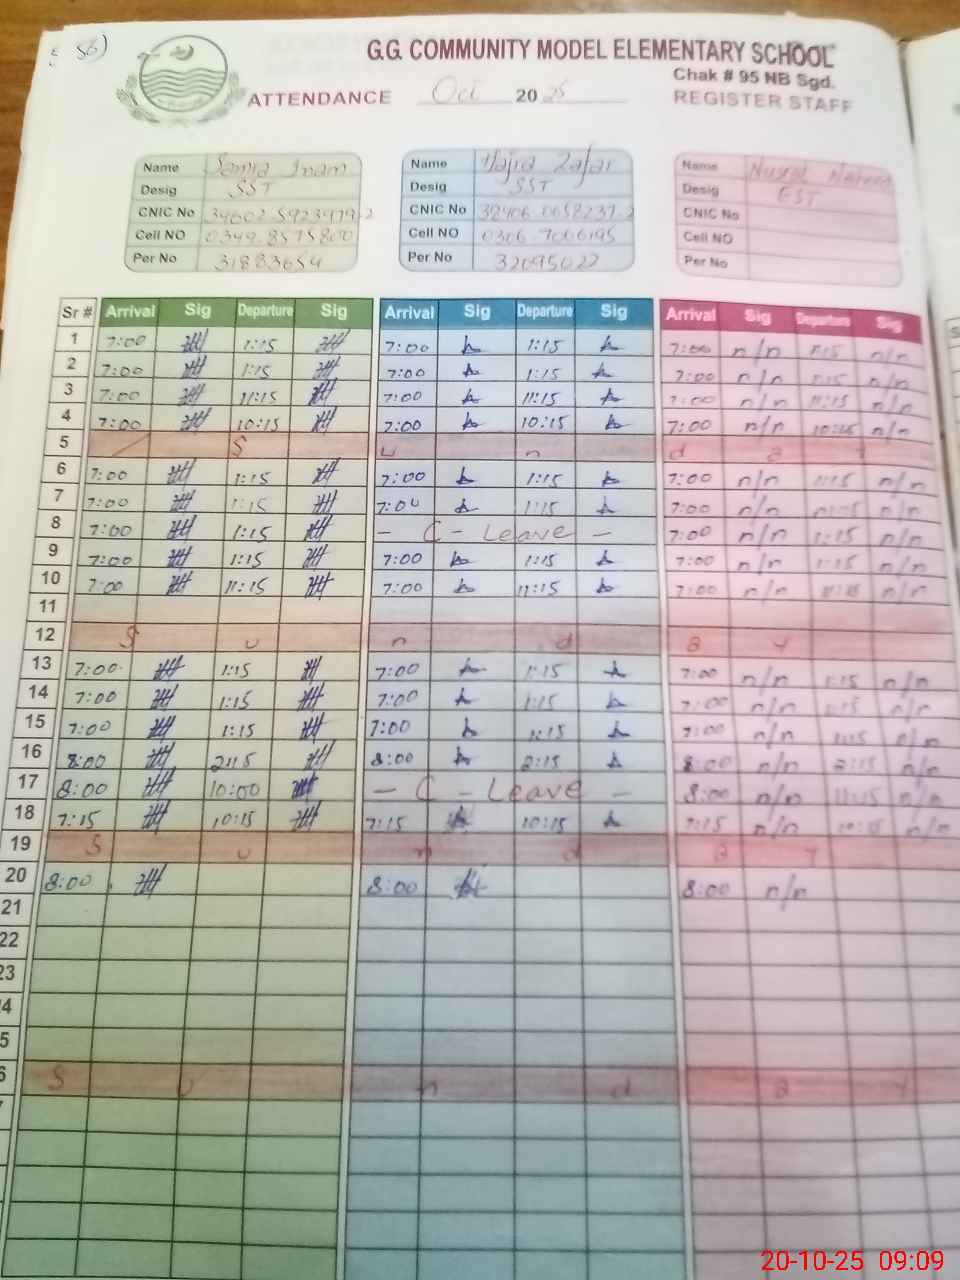 56)
G.G. COMMUNITY MODEL ELEMENTARY SCHOOL
Chak # 95 NB Sgd.
ATTENDANCE Oct 2025 REGISTER STAFF
Name Samra Inam Name Hajra Zafar Name
Desig SST Desig SST Desig EST
CNIC No CNIC No CNIC No
Cell NO 0349.8575800 Cell NO 0306.7066195 Cell NO
Per No 31883654 Per No 32095022 Per No
Sr # Arrival Sig Departure Sig Arrival Sig Departure Sig Arrival Sig Departure Sig
1 7:00 1:15 7:00 1:15 7:00 n/n 1:15 n/n
2 7:00 1:15 7:00 1:15 7:00 n/n 1:15 n/n
3 7:00 11:15 7:00 11:15 7:00 n/n 11:15 n/n
4 7:00 10:15 7:00 10:15 7:00 n/n 10:15 n/n
5 S u n d a y
6 7:00 1:15 7:00 1:15 7:00 n/n 1:15 n/n
7 7:00 1:15 7:00 1:15 7:00 n/n 1:15 n/n
8 7:00 1:15 - C - Leave - 7:00 n/n 1:15 n/n
9 7:00 1:15 7:00 1:15 7:00 n/n 1:15 n/n
10 7:00 11:15 7:00 11:15 7:00 n/n 11:15 n/n
11
12 S u n d a y
13 7:00 1:15 7:00 1:15 7:00 n/n 1:15 n/n
14 7:00 1:15 7:00 1:15 7:00 n/n 1:15 n/n
15 7:00 1:15 7:00 1:15 7:00 n/n 1:15 n/n
16 8:00 2:15 8:00 2:15 8:00 n/n 2:15 n/n
17 8:00 10:00 - C - Leave - 8:00 n/n 11:15 n/n
18 7:15 10:15 7:15 10:15 7:15 n/n 10:15 n/n
19 S u n d a y
20 8:00 8:00 8:00 n/n
21
22
23
4
5
6 S u n d a y
20-10-25 09:09